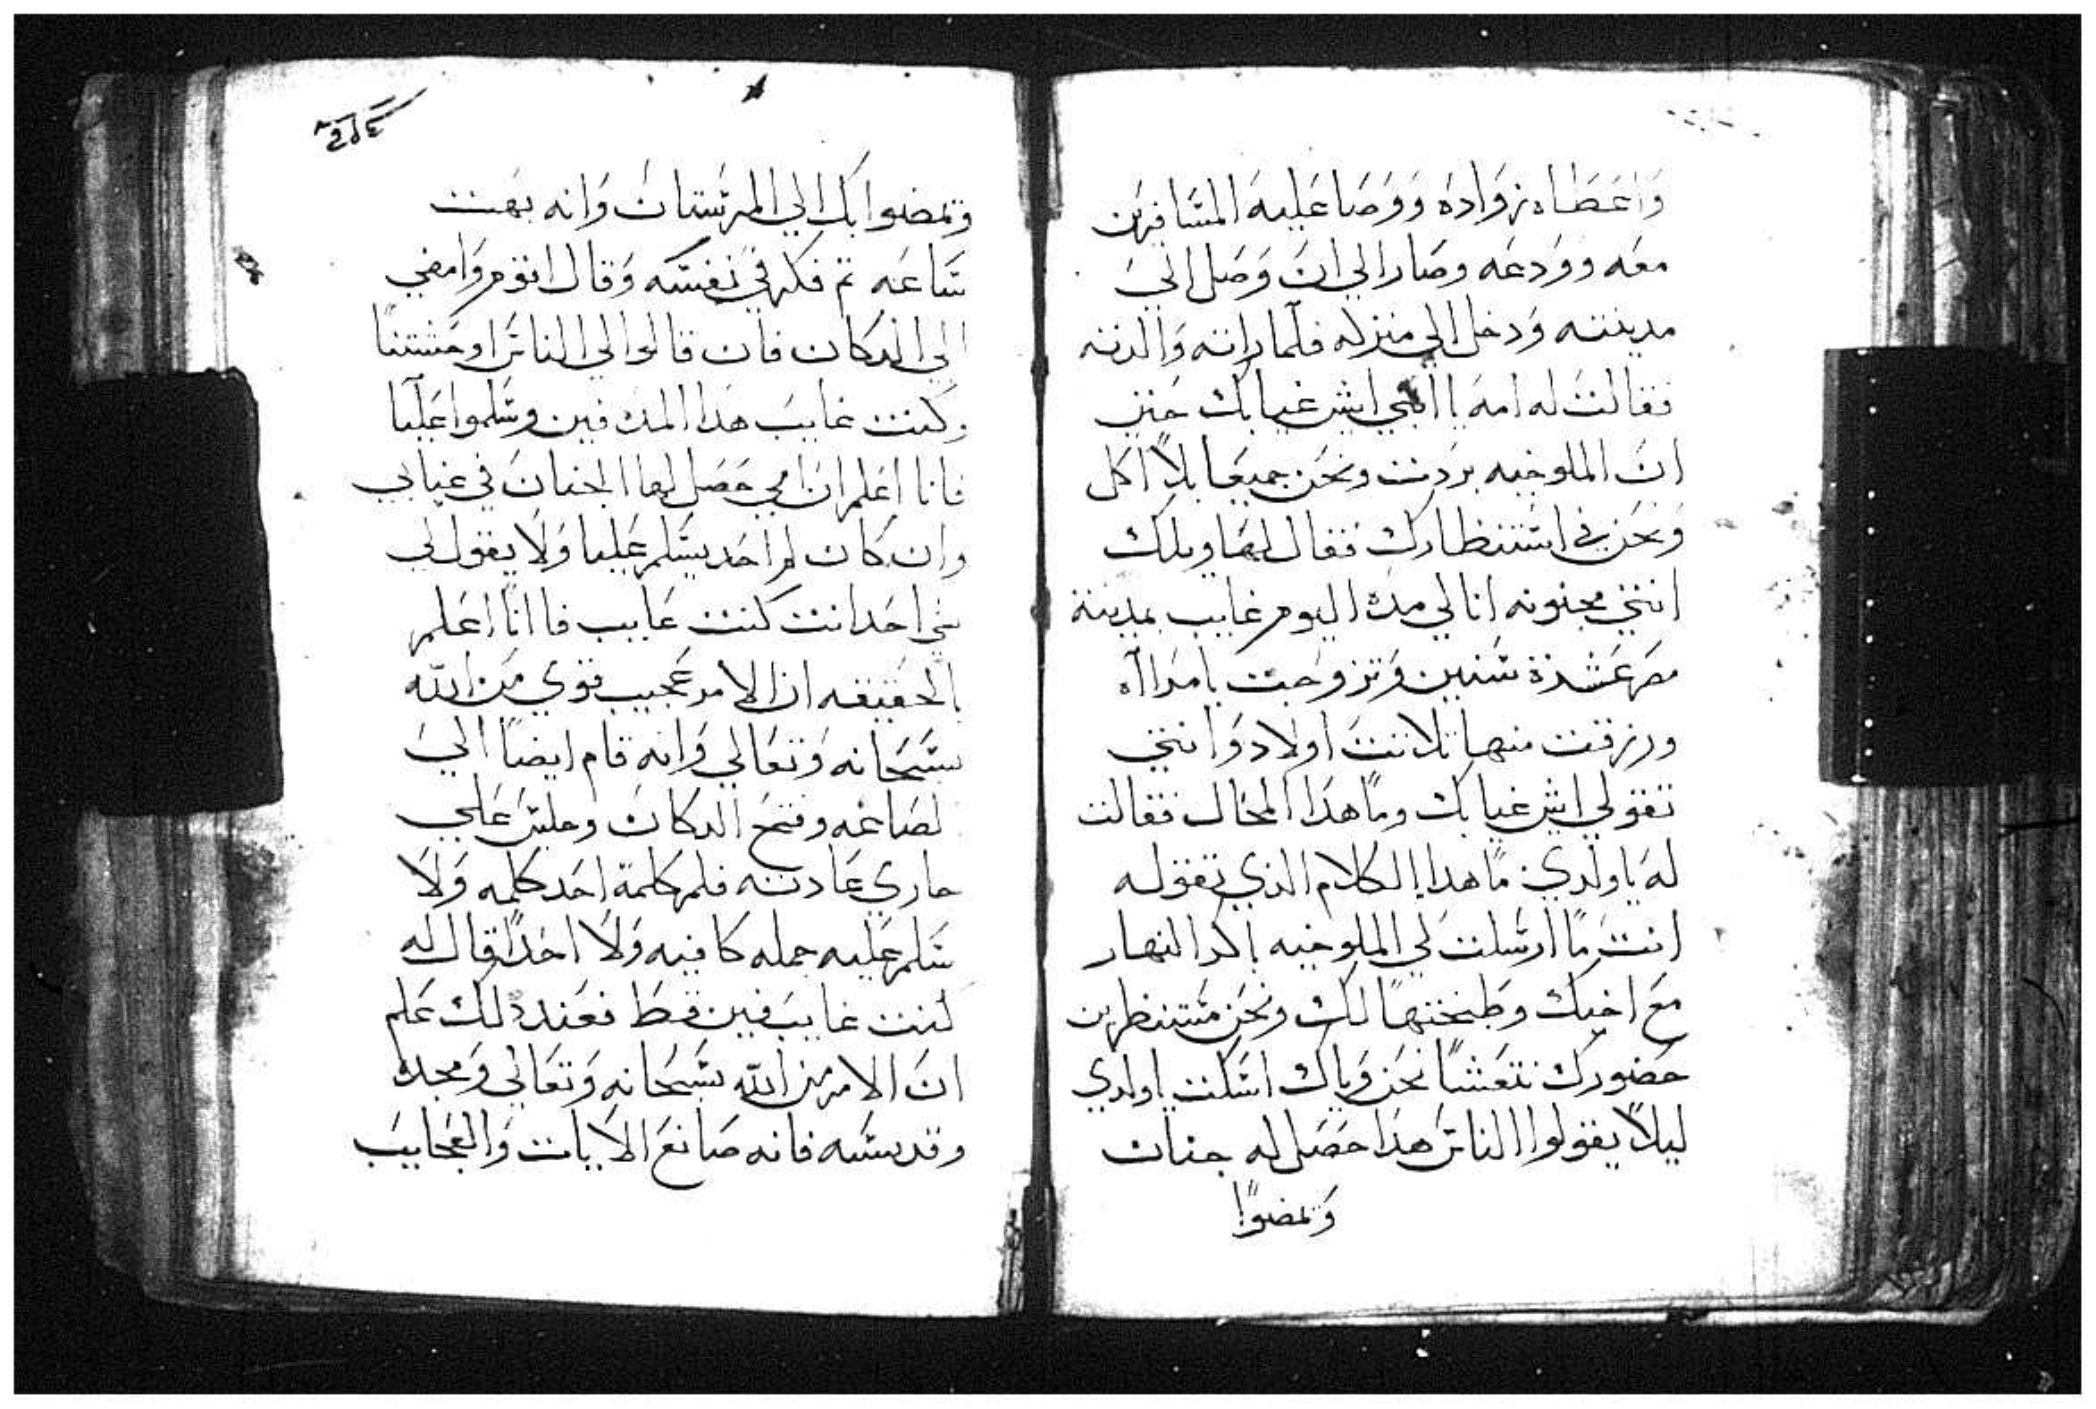 واعطاه زواده ووصا عليه المسافرين
معه وودعه وصار الي ان وصل الي
مدينته ودخل الي منزله فلما راته والدته
فقالت له امه يا ابني ايش غيابك حتي
ان الملوخيه بردت ونحن جميعا بلا اكل
ونحن في استنظارك فقال لها ويلك
انتي مجنونه انا لي مده اليوم غايب بمدينة
مصر عشرة سنين وتزوجت بامراه
ورزقت منها تلاتت اولاد وانتي
تقولي ايش غيابك وما هدا المحال فقالت
له يا ولدي ما هدا الكلام الذي تقوله
انت ما ارسلت لي الملوخيه باكر النهار
مع اخيك وطبختها لك ونحن مستنظرين
حضورك نتعشا نحن وياك اسكت ياولدي
ليلا يقولوا الناس هدا حصل له جنان
وتمضوا
وتمضوا بك الي المرستان وانه بهت
ساعه تم فكر في نفسه وقال انا اقوم وامضي
الي الدكان فان قالوا لي الناس اوحشتنا
وكنت غايب هدا المده فين وسلموا عليا
فانا اعلم ان امي حصل لها الجنان في غيابي
وان كان لم احد يسلم عليا ولا يقول لي
شي احد انت كنت غايب فاانا اعلم
بالحقيقه ان الامر عجيب قوي من الله
سبحانه وتعالي وانه قام ايضا الي
الصاغه وفتح الدكان وجلس علي
جاري عادته فلم كلمة احد كلمه ولا
سلم عليه جمله كافيه ولا احدا قال له
كنت غايب فين قط فعند دلك علم
ان الامر من الله سبحانه وتعالي ومجده
وقدسه فانه صانع الايات والعجايب